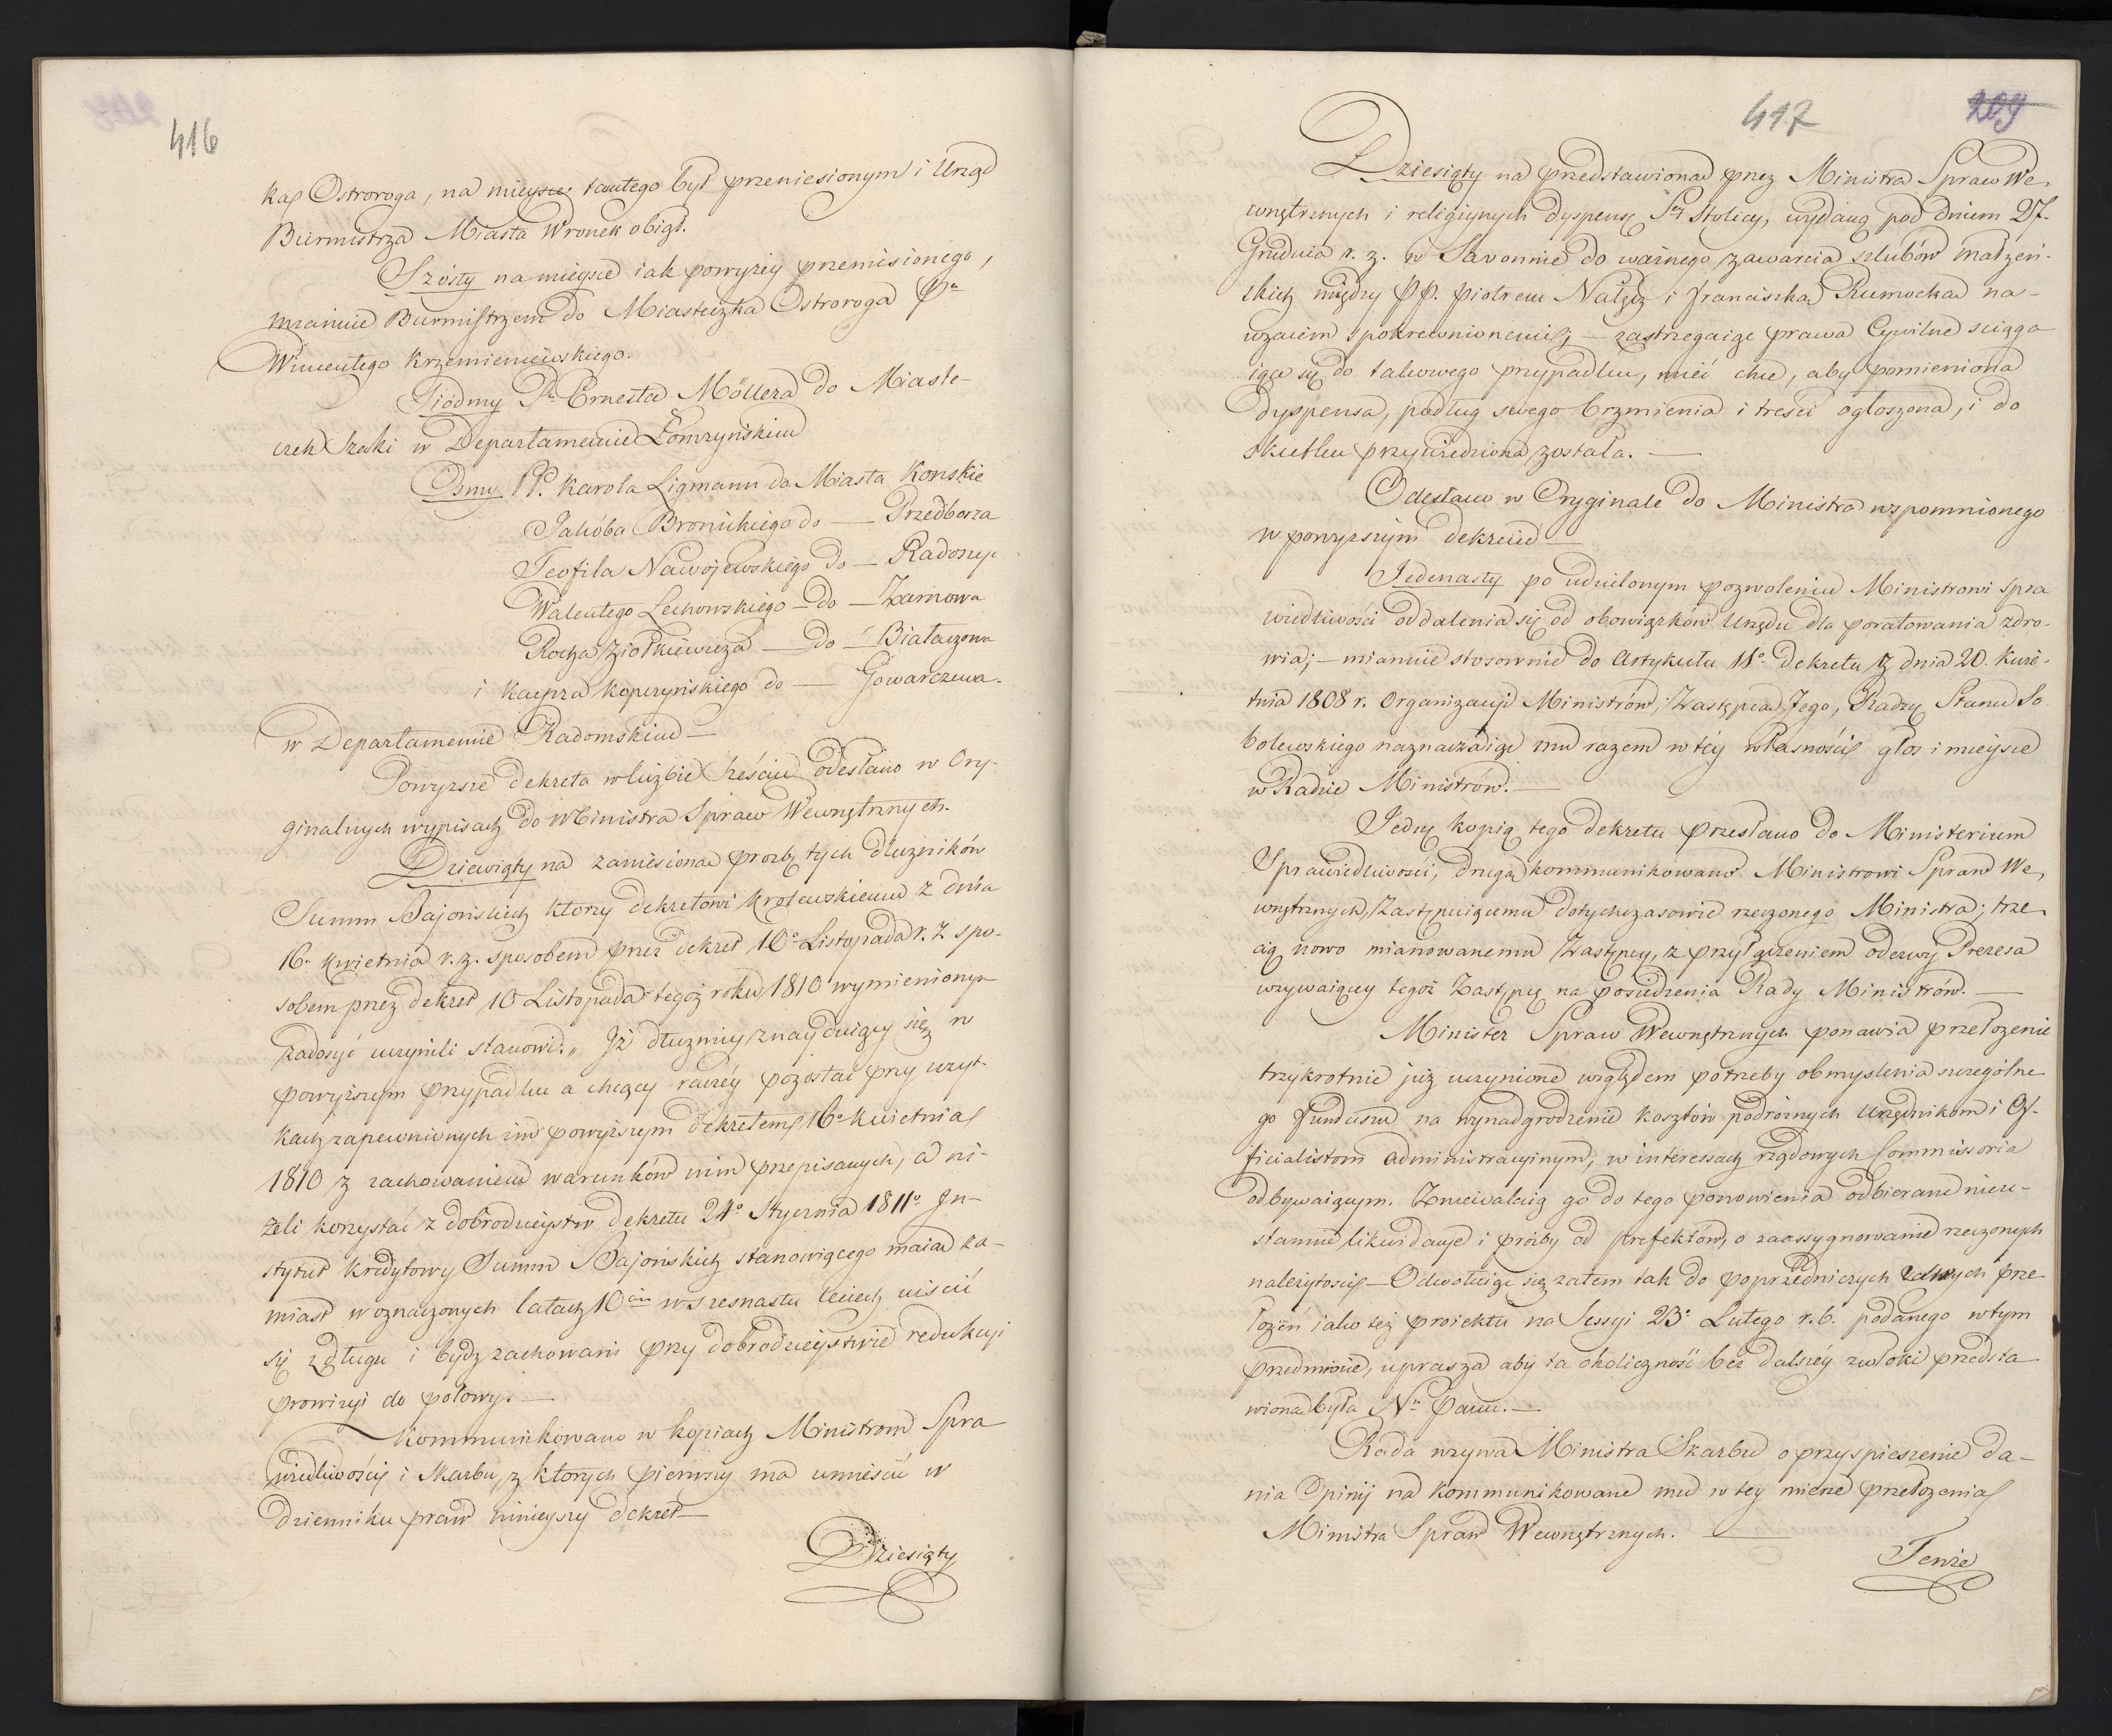 416
ka Ostroroga, na mieysce tamtego był przeniesionym i Urząd
Burmistrza Miasta Wronek obiął.
Szósty na mieysce iak powyżey przeniesionego,
mianuie Burmistrzem do Miasteczka Ostroroga Pa
Wincentego Krzemieniewskiego.
Siódmy Pa Ernesta Möllera do Miaste-
czek Szaki w Departamencie Łomżyńskim
Osmy PP. Karola Ligmann do Miasta Konskie
Jakóba Bronickiego do — Przedborza
Teofila Nawojewskiego do — Radoszyc
Walentego Lechowskiego — do — Żarnowa
Rocha Ziołkiewicza — do — Białaczowa
i Kacpra Kopczyńskiego do — Gowarczewa.
w Departamencie Radomskim —
Powyższe dekreta w liczbie sześciu odesłano w Ory-
ginalnych wypisach do Ministra Spraw Wewnętrznych.
Dziewiąty na zaniesioną prozbę tych dłużników
Summ Bajońskich którzy dekretowi Królewskiemu z dnia
16o Kwietnia r. z. sposobem przez dekret 10o Listopada r. z spo-
sobem przez dekret 10 Listopada tegoż roku 1810 wymienionym
zadosyć uczynili stanowi: „ Iż dłużnicy znayduiący się w
powyższym przypadku a chcący raczéy pozostać przy uzyt-
kach zapewnionych im powyższym dekretem 16o Kwietnia
1810 z zachowaniem warunków nim przepisanych, a ni-
żeli korzystać z dobrodzieystw dekretu 24o Stycznia 1811o In-
stytut Kredytowy Summ Bajońskich stanowiącego maią za-
miast w oznaczonych latach 10ciu w szesnastu leciech uiścić
się z długu i bydź zachowani przy dobrodzieystwie redukcyi
prowizyi do połowy. —
Kommunikowano w kopiach Ministrom Spra
wiedliwości i Skarbu, z których pierwszy ma umieścić w
dzienniku praw ninieyszy dekret —
Dziesiąty
417
209
Dziesiąty na przedstawioną przez Ministra Spraw We-
wnętrznych i religiynych dyspensę Stey Stolicy, wydaną pod dniem 27.
Grudnia r. z. w Savonnie do ważnego zawarcia szlubów małżeń-
skich między PP. Piotrem Nałęcz i Franciszką Rumocką na-
wzaiem spokrewnionemi; — zastrzegaiąc prawa Cywilne ściąga
iące się do takowego przypadku, mieć chce, aby pomieniona
dyspensa, podług swego brzmienia i treści ogłoszona, i do
skutku przywiedziona została. —
Odesłano w Oryginale do Ministra wspomnionego
w powyższym dekrecie —
Jedenasty po udzielonym pozwoleniu Ministrowi Spra
wiedliwości oddalenia się od obowiązków Urzędu dla poratowania zdro-
wia; — mianuie stosownie do Artykułu 11o dekretu z dnia 20. Kwie-
tnia 1808 r. Organizacyi Ministrów, Zastępcą Jego, Radzcę Stanu So
bolewskiego naznaczaiąc mu razem w téy własności głos i mieysce
w Radzie Ministrów. —
Jedną kopią tego dekretu przesłano do Ministerium
Sprawiedliwości, drugą kommunikowano Ministrowi Spraw We-
wnętrznych, Zastępuiącemu dotychczasowie rzeczonego Ministra; trze-
cią nowo mianowanemu Zastępcy, z przyłączeniem odezwy Prezesa
wzywaiącey tegoż Zastępcę na posiedzenia Rady Ministrów. —
Minister Spraw Wewnętrznych ponawia przełożenie
trzykrotnie już uczynione względem potrzeby obmyslenia szczególne
go Funduszu na wynadgrodzenie kosztów podróżnych Urzędnikom i Of-
ficialistom administracyinym, w interessach rządowych Commissoria
odbywaiącym. Zniewalaią go do tego ponowienia odbierane nieu-
stannie likwidacye i prózby od prefektów, o zaassygnowanie rzeczonych
należytości — Odwołuiąc się zatem tak do poprzedniczych swych prze
łożeń iako też proiektu na Sessyi 23o Lutego r. b. podanego w tym
przedmiocie, uprasza aby ta okoliczność bez dalszéy zwłoki przedsta
wioną była Nu Panu. —
Rada wzywa Ministra Skarbu o przyspieszenie da-
nia Opinij na kommunikowane mu w tey mierze przełożenia
Ministra Spraw Wewnętrznych. —
Tenże